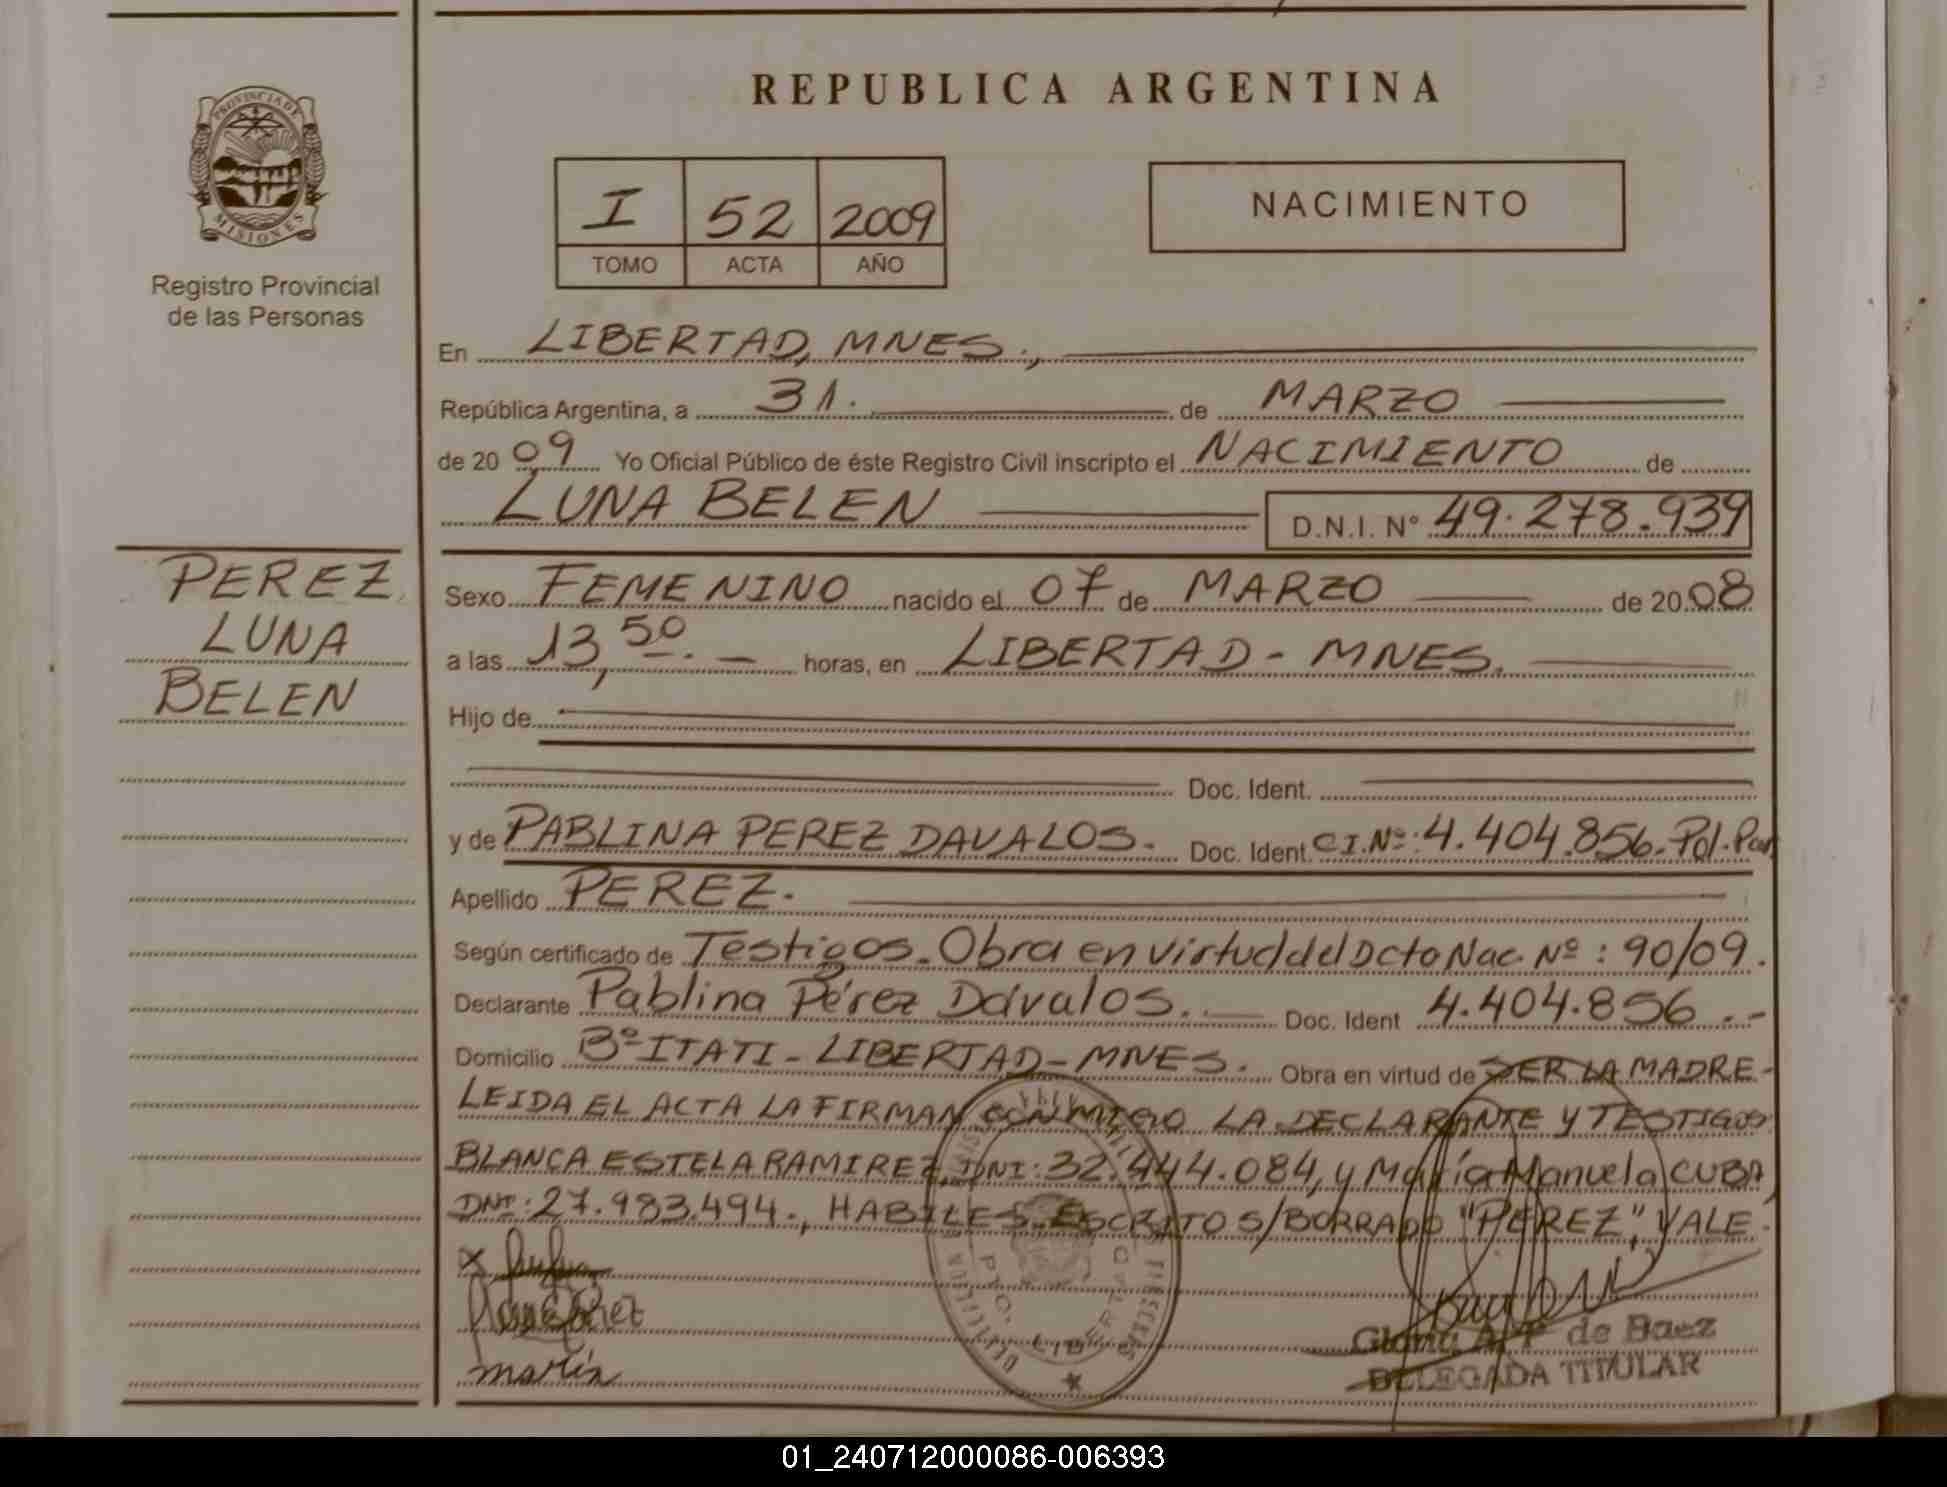 REPUBLICA ARGENTINA
PROVINCIA DE
MISIONES
Registro Provincial
de las Personas
I 52 2009
TOMO ACTA AÑO
NACIMIENTO
En LIBERTAD, MNES.,
República Argentina, a 31. de MARZO
de 2009 Yo Oficial Público de éste Registro Civil inscripto el NACIMIENTO de
LUNA BELEN D.N.I. Nº 49.278.939
PEREZ
LUNA
BELEN
Sexo FEMENINO nacido el 07 de MARZO de 2008
a las 13,50. horas, en LIBERTAD - MNES.
Hijo de
Doc. Ident.
y de PABLINA PEREZ DAVALOS. Doc. Ident. C.I.Nº: 4.404.856. Pol. Par
Apellido PEREZ.
Según certificado de Testigos. Obra en virtud del Dcto Nac. Nº: 90/09.
Declarante Pablina Pérez Dávalos. Doc. Ident 4.404.856.-
Domicilio Bº ITATI - LIBERTAD - MNES. Obra en virtud de SER LA MADRE-
LEIDA EL ACTA LA FIRMAN CONMIGO LA DECLARANTE Y TESTIGOS
BLANCA ESTELA RAMIREZ, DNI: 32.444.084, y María Manuela CUBA,
DNI: 27.983.494., HABILES. ESCRITO S/BORRADO "PEREZ", VALE.
maria
de Baez
DELEGADA TITULAR
01_240712000086-006393